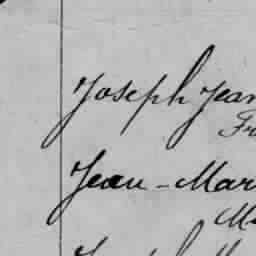 Joseph Jean
Fr
Jean-Mar
Ma